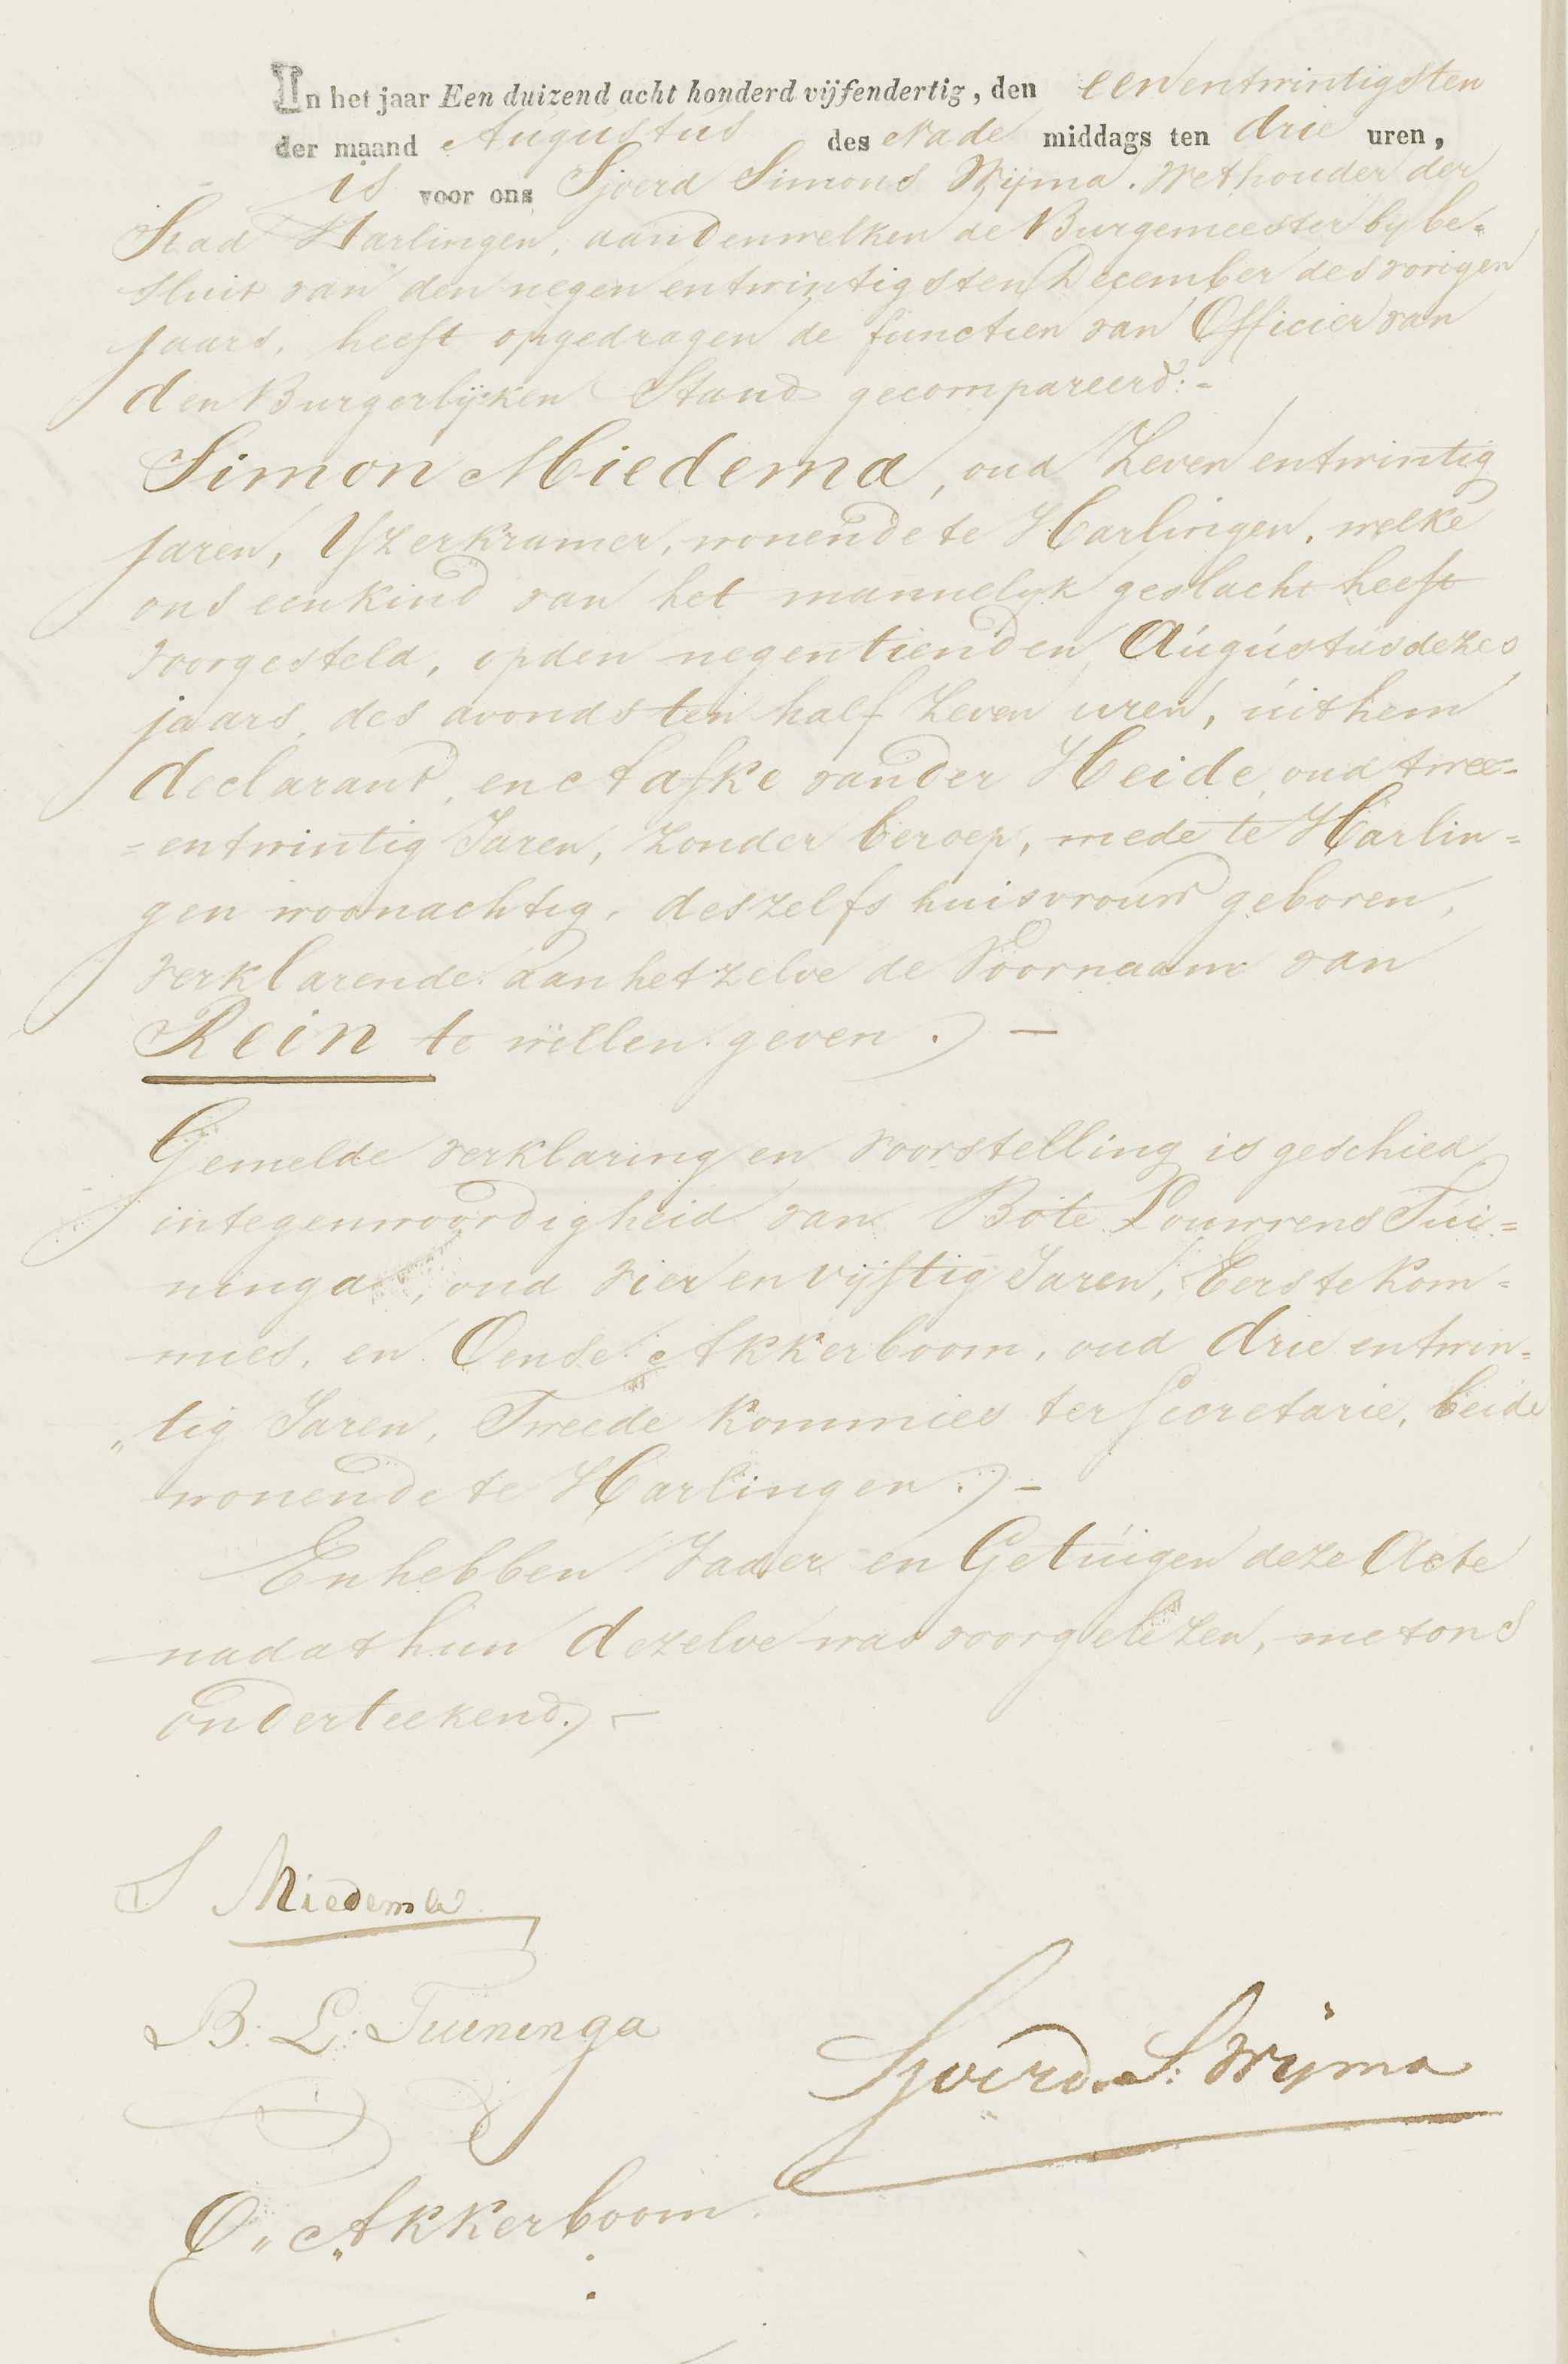 In het jaar Een duizend acht honderd vijfendertig, den eenentwintigsten
der maand Augustus des Nade middags ten drie uren,
is voor ons Sjoerd Simons Wijma. Wethouder der
Stad Harlingen, aan denwelken de Burgemeester by be-
sluit van den negen entwintigsten December des vorigen
jaars, heeft opgedragen de functien van Officier van
den Burgerlijken Stand gecompareerd:-
Simon Miedema, oud Zeven entwintig
jaren, IJzerkramer, wonende te Harlingen, welke
ons een kind van het mannelyk geslacht heeft
voorgesteld, op den negentienden Augustus dezes
jaars, des avonds ten half Zeven uren, uit hem
declarant, en Aafke van der Heide, oud twee=
=entwintig Jaren, Zonder beroep, mede te Harlin=
gen woonachtig, deszelfs huisvrouw geboren,
verklarende aan hetzelve de Voornaam van
Rein te willen geven. -
Gemelde verklaring en voorstelling is geschied
in tegenwoordigheid van Bote Louwrens Tui=
ninga, oud vier en vijftig Jaren, Eerste Kom=
mies, en Oense Akkerboom, oud drie entwin=
„tig Jaren, Tweede Kommies ter Secretarie, beide
wonende te Harlingen. -
En hebben Vader en Getuigen deze Acte
nadat hun dezelve was voorgelezen, met ons
onderteekend. -
S Miedema
B: L: Tuininga
Sjoerd S: Wijma
O„ Akkerboom